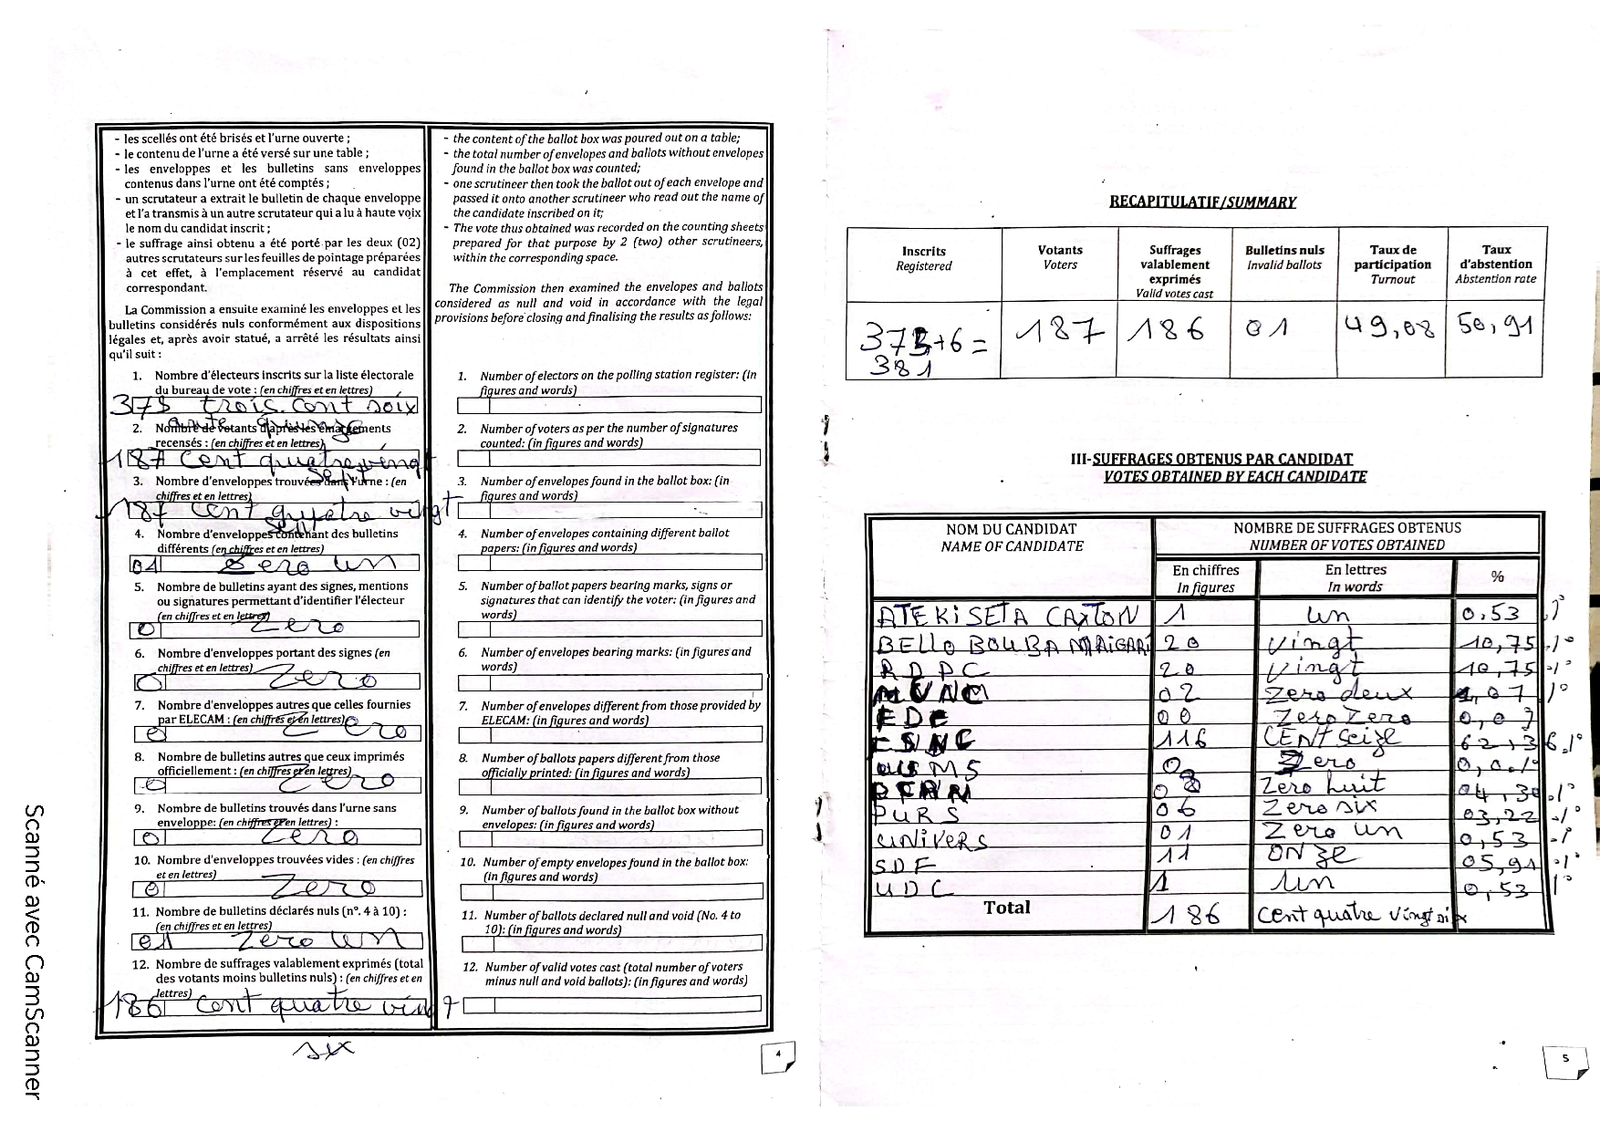 - les scellés ont été brisés et l'urne ouverte ;
- le contenu de l'urne a été versé sur une table ;
- les enveloppes et les bulletins sans enveloppes
contenus dans l'urne ont été comptés ;
- un scrutateur a extrait le bulletin de chaque enveloppe
et l'a transmis à un autre scrutateur qui a lu à haute voix
le nom du candidat inscrit ;
- le suffrage ainsi obtenu a été porté par les deux (02)
autres scrutateurs sur les feuilles de pointage préparées
à cet effet, à l'emplacement réservé au candidat
correspondant.
La Commission a ensuite examiné les enveloppes et les
bulletins considérés nuls conformément aux dispositions
légales et, après avoir statué, a arrêté les résultats ainsi
qu'il suit :
1. Nombre d'électeurs inscrits sur la liste électorale
du bureau de vote : (en chiffres et en lettres)
375 trois cent soix
ante quinze
2. Nombre de votants d'après les émargements
recensés : (en chiffres et en lettres)
187 cent quatre vingt
sept
3. Nombre d'enveloppes trouvées dans l'urne : (en
chiffres et en lettres)
187 cent quatre vingt
sept
4. Nombre d'enveloppes contenant des bulletins
différents (en chiffres et en lettres)
01 zero un
5. Nombre de bulletins ayant des signes, mentions
ou signatures permettant d'identifier l'électeur
(en chiffres et en lettres)
0 zero
6. Nombre d'enveloppes portant des signes (en
chiffres et en lettres)
0 zero
7. Nombre d'enveloppes autres que celles fournies
par ELECAM : (en chiffres et en lettres)
0 zero
8. Nombre de bulletins autres que ceux imprimés
officiellement : (en chiffres et en lettres)
0 zero
9. Nombre de bulletins trouvés dans l'urne sans
enveloppe: (en chiffres et en lettres) :
0 zero
10. Nombre d'enveloppes trouvées vides : (en chiffres
et en lettres)
0 zero
11. Nombre de bulletins déclarés nuls (n°. 4 à 10) :
(en chiffres et en lettres)
01 zero un
12. Nombre de suffrages valablement exprimés (total
des votants moins bulletins nuls) : (en chiffres et en
lettres)
186 cent quatre vingt
six
- the content of the ballot box was poured out on a table;
- the total number of envelopes and ballots without envelopes
found in the ballot box was counted;
- one scrutineer then took the ballot out of each envelope and
passed it onto another scrutineer who read out the name of
the candidate inscribed on it;
- The vote thus obtained was recorded on the counting sheets
prepared for that purpose by 2 (two) other scrutineers,
within the corresponding space.
The Commission then examined the envelopes and ballots
considered as null and void in accordance with the legal
provisions before closing and finalising the results as follows:
1. Number of electors on the polling station register: (in
figures and words)
2. Number of voters as per the number of signatures
counted: (in figures and words)
3. Number of envelopes found in the ballot box: (in
figures and words)
4. Number of envelopes containing different ballot
papers: (in figures and words)
5. Number of ballot papers bearing marks, signs or
signatures that can identify the voter: (in figures and
words)
6. Number of envelopes bearing marks: (in figures and
words)
7. Number of envelopes different from those provided by
ELECAM: (in figures and words)
8. Number of ballots papers different from those
officially printed: (in figures and words)
9. Number of ballots found in the ballot box without
envelopes: (in figures and words)
10. Number of empty envelopes found in the ballot box:
(in figures and words)
11. Number of ballots declared null and void (No. 4 to
10): (in figures and words)
12. Number of valid votes cast (total number of voters
minus null and void ballots): (in figures and words)
4
Scanné avec CamScanner
RECAPITULATIF/SUMMARY
Inscrits Registered Votants Voters Suffrages valablement exprimés Valid votes cast Bulletins nuls Invalid ballots Taux de participation Turnout Taux d'abstention Abstention rate
375+6= 187 186 01 49,08 50,91
381
III-SUFFRAGES OBTENUS PAR CANDIDAT
VOTES OBTAINED BY EACH CANDIDATE
NOM DU CANDIDAT NOMBRE DE SUFFRAGES OBTENUS
NAME OF CANDIDATE NUMBER OF VOTES OBTAINED
En chiffres En lettres %
In figures In words
ATEKISETA CAXTON 1 un 0,53 %
BELLO BOUBA MAIGARI 20 vingt 10,75 %
RDPC 20 vingt 10,75 %
02 zero deux 1,07 %
00 zero zero
FSNC 116 CENT seize 62,36 %
0 zero
08 zero huit 04,30 %
PURS 06 zero six 03,22 %
UNIVERS 01 zero un 0,53 %
SDF 11 onze 05,91 %
UDC 1 un 0,53 %
Total 186 cent quatre vingt six
5